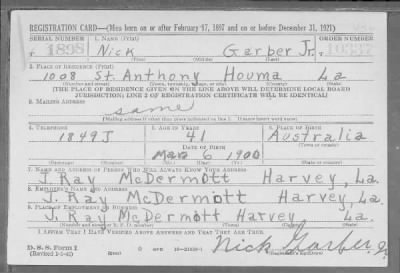 REGISTRATION CARD—(Men born on or after February 17, 1897 and on or before December 31, 1921)
SERIAL NUMBER 1. NAME (Print) ORDER NUMBER
T 1898 Nick Garber Jr. 10337
(First) (Middle) (Last)
2. PLACE OF RESIDENCE (Print)
1008 St. Anthony Houma La
(Number and street) (Town, township, village, or city) (County) (State)
[THE PLACE OF RESIDENCE GIVEN ON THE LINE ABOVE WILL DETERMINE LOCAL BOARD
JURISDICTION; LINE 2 OF REGISTRATION CERTIFICATE WILL BE IDENTICAL]
3. MAILING ADDRESS
same
[Mailing address if other than place indicated on line 2. If same insert word same]
4. TELEPHONE 5. AGE IN YEARS 6. PLACE OF BIRTH
1849J 41 Australia
DATE OF BIRTH (Town or county)
Mar 6 1900
(Mo.) (Day) (Yr.) (State or country)
7. NAME AND ADDRESS OF PERSON WHO WILL ALWAYS KNOW YOUR ADDRESS
J. Ray McDermott Harvey, La.
8. EMPLOYER'S NAME AND ADDRESS
J. Ray McDermott Harvey, La.
9. PLACE OF EMPLOYMENT OR BUSINESS
J. Ray McDermott Harvey, La.
(Number and street or R. F. D. number) (Town) (County) (State)
I AFFIRM THAT I HAVE VERIFIED ABOVE ANSWERS AND THAT THEY ARE TRUE.
D. S. S. Form 1 (over)
(Revised 1-1-42)
Nick Garber Jr